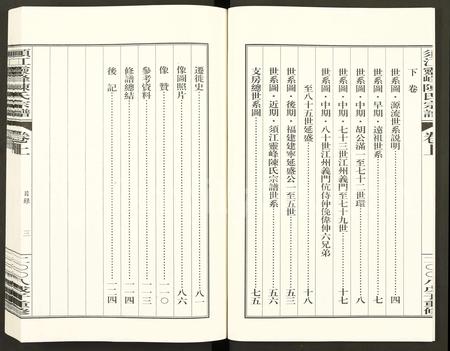 須江靈峰陳氏宗譜
卷上
二〇〇八戊子重修
下卷
世系圖·源流世系説明 四
世系圖·早期·遠祖世系 七
世系圖·中期·胡公滿一至七十二世環 八
世系圖·中期·七十三世江州義門至七十九世 十七
世系圖·中期·八十世江州義門伉侍仲俛偉伸六兄弟
至八十五世延盛 十八
世系圖·後期·福建建寧延盛公一至五世 五三
世系圖·近期·須江靈峰陳氏宗譜世系 五六
支房總世系圖 七五
遷徙史 八一
像圖照片 八六
像贊 一一〇
參考資料 一一三
修譜總結 一一四
後記 一二四
須江靈峰陳氏宗譜
卷上
目錄
三
二〇〇八戊子重修